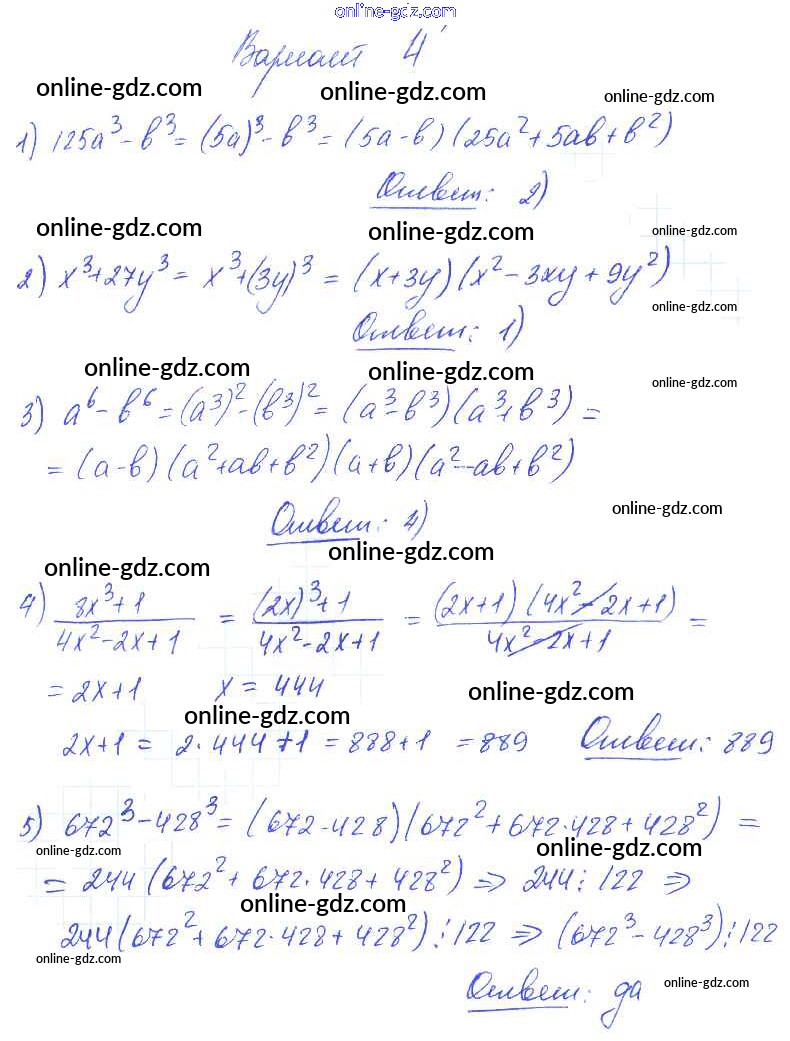 online-gdz.com
Вариант 4
online-gdz.com online-gdz.com online-gdz.com
1) 125a³ - b³ = (5a)³ - b³ = (5a - b) (25a² + 5ab + b²)
Ответ: 2)
online-gdz.com online-gdz.com online-gdz.com
2) x³ + 27y³ = x³ + (3y)³ = (x + 3y) (x² - 3xy + 9y²)
online-gdz.com
Ответ: 1)
online-gdz.com online-gdz.com online-gdz.com
3) a⁶ - b⁶ = (a³)² - (b³)² = (a³ - b³) (a³ + b³) =
= (a - b) (a² + ab + b²) (a + b) (a² - ab + b²)
online-gdz.com
Ответ: 4)
online-gdz.com
online-gdz.com
4) (8x³ + 1)/(4x² - 2x + 1) = ((2x)³ + 1)/(4x² - 2x + 1) = ((2x + 1) (4x² - 2x + 1))/(4x² - 2x + 1) =
= 2x + 1 x = 444
online-gdz.com
online-gdz.com
2x + 1 = 2 · 444 + 1 = 888 + 1 = 889 Ответ: 889
5) 672³ - 428³ = (672 - 428) (672² + 672 · 428 + 428²) =
online-gdz.com online-gdz.com
= 244 (672² + 672 · 428 + 428²) ⇒ 244 ⋮ 122 ⇒
online-gdz.com
244 (672² + 672 · 428 + 428²) ⋮ 122 ⇒ (672³ - 428³) ⋮ 122
online-gdz.com
Ответ: да
online-gdz.com